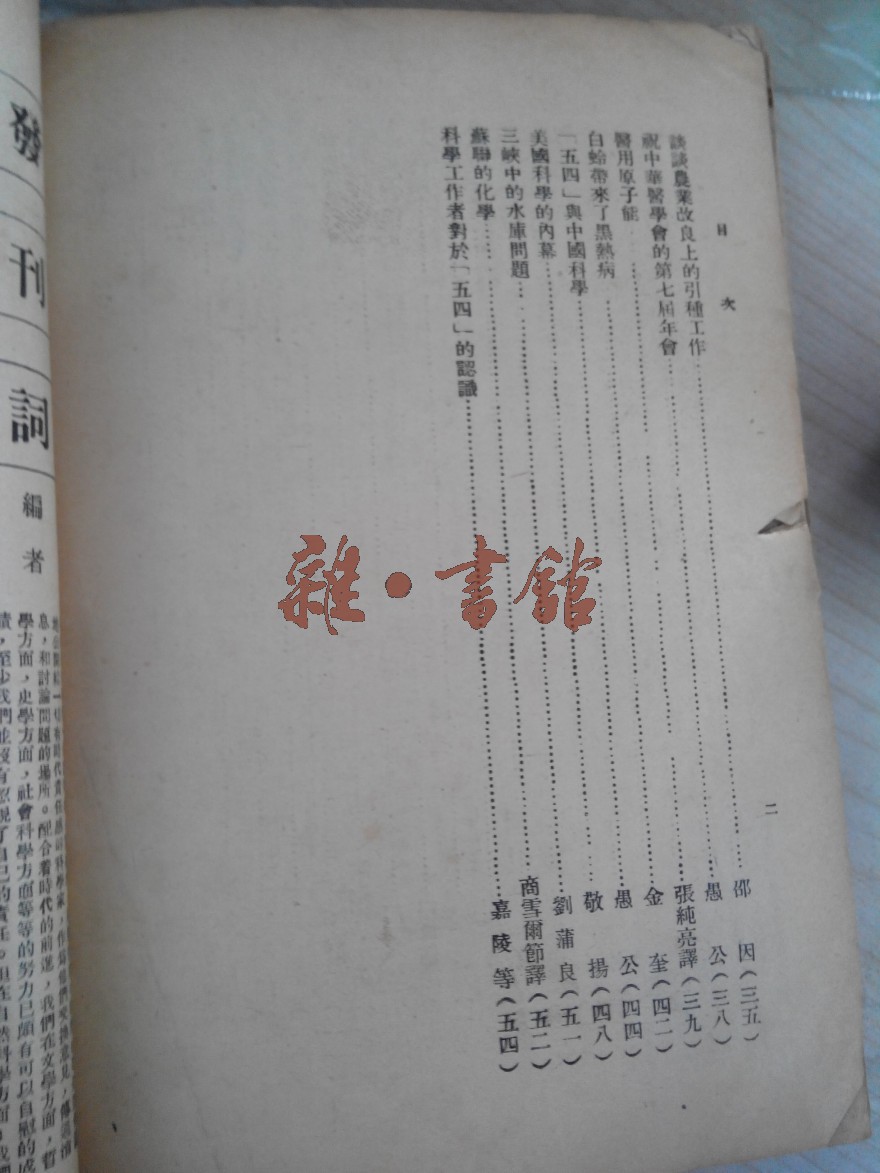 目次
談談農業改良上的引種工作……邵因(三五)
祝中華醫學會的第七屆年會……愚公(三八)
醫用原子能……張純亮譯(三九)
白蛉帶來了黑熱病……金奎(四二)
「五四」與中國科學……愚公(四四)
美國科學的內幕……敬揚(四八)
三峽中的水庫問題……劉蒲良(五一)
蘇聯的化學……商雪爾節譯(五二)
科學工作者對於「五四」的認識……嘉陵等(五四)
二
雜·書館
發刊詞
編者
息,和討論問題的場所。配合着時代的前進,我們在文學方面,哲
學方面,史學方面,社會科學方面等等的努力已頗有可以自慰的成
績,至少我們並沒有忽視了自己的責任。但在自然科學方面,我們